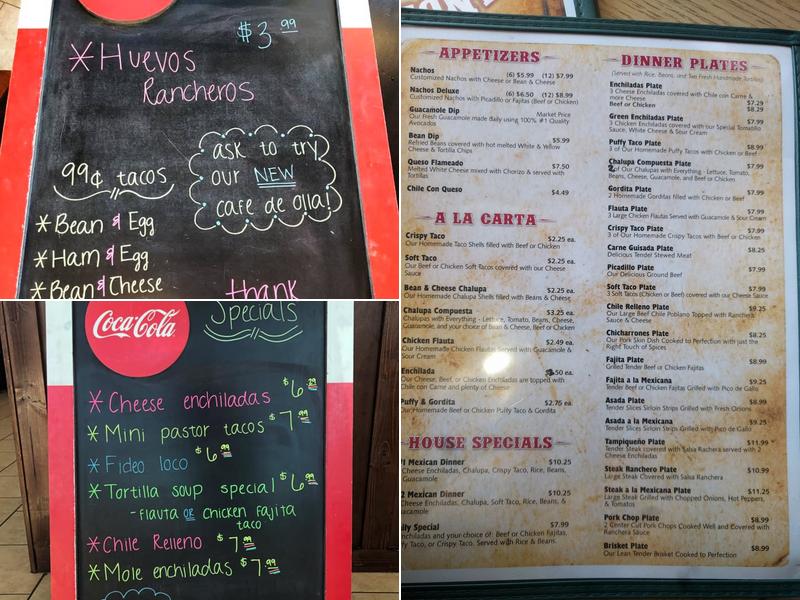 $3.99
*Huevos
Rancheros
99¢ tacos
ask to try
our NEW
cafe de olla!
*Bean & Egg
*Ham & Egg
*Bean & Cheese
thank
Coca-Cola
Specials
*Cheese enchiladas
*Mini pastor tacos $7.99
*Fideo loco $6.99
*Tortilla soup special $6.99
-flauta or chicken fajita
taco
*Chile Relleno $7.99
*Mole enchiladas $7.99
APPETIZERS
Nachos (6) $5.99 (12) $7.99
Customized Nachos with Cheese or Bean & Cheese
Nachos Deluxe (6) $6.50 (12) $8.99
Customized Nachos with Picadillo or Fajitas (Beef or Chicken)
Guacamole Dip Market Price
Our Fresh Guacamole made daily using 100% #1 Quality
Avocados
Bean Dip $5.99
Refried Beans covered with hot melted White & Yellow
Cheese & Tortilla Chips
Queso Flameado $7.50
Melted White Cheese mixed with Chorizo & served with
Tortillas
Chile Con Queso $4.49
A LA CARTA
Crispy Taco $2.25 ea.
Our Homemade Taco Shells filled with Beef or Chicken
Soft Taco $2.25 ea.
Our Beef or Chicken Soft Tacos covered with our Cheese
Sauce
Bean & Cheese Chalupa $2.25 ea.
Our Homemade Chalupa Shells filled with Beans & Cheese
Chalupa Compuesta $3.25 ea.
Chalupas with Everything - Lettuce, Tomato, Beans, Cheese,
Guacamole, and your choice of Bean & Cheese, Beef or Chicken
Chicken Flauta $2.49 ea.
Our Homemade Chicken Flautas Served with Guacamole &
Sour Cream
Enchilada .50 ea.
Our Cheese, Beef, or Chicken Enchiladas are topped with
Chile con Carne and plenty of Cheese
Puffy & Gordita $2.75 ea.
Our Homemade Beef or Chicken Puffy Taco & Gordita
HOUSE SPECIALS
#1 Mexican Dinner $10.25
Cheese Enchiladas, Chalupa, Crispy Taco, Rice, Beans,
Guacamole
2 Mexican Dinner $10.25
Cheese Enchiladas, Chalupa, Soft Taco, Rice, Beans, &
uacamole
ily Special $7.99
nchiladas and your choice of: Beef or Chicken Fajitas,
fy Taco, or Crispy Taco. Served with Rice & Beans.
DINNER PLATES
(Served with Rice, Beans, and Two Fresh Handmade Tortillas)
Enchiladas Plate
3 Cheese Enchiladas covered with Chile con Carne &
more Cheese $7.29
Beef or Chicken $8.29
Green Enchiladas Plate $7.99
3 Chicken Enchiladas covered with our Special Tomatillo
Sauce, White Cheese & Sour Cream
Puffy Taco Plate $7.99
3 of Our Homemade Puffy Tacos with Chicken or Beef
Chalupa Compuesta Plate $7.99
2 of Our Chalupas with Everything - Lettuce, Tomato,
Beans, Cheese, Guacamole, and Beef or Chicken
Gordita Plate $7.99
2 Homemade Gorditas filled with Chicken or Beef
Flauta Plate $7.99
3 Large Chicken Flautas Served with Guacamole & Sour Cream
Crispy Taco Plate $7.99
3 of Our Homemade Crispy Tacos with Beef or Chicken
Carne Guisada Plate $8.25
Delicious Tender Stewed Meat
Picadillo Plate $7.99
Our Delicious Ground Beef
Soft Taco Plate $7.99
3 Soft Tacos (Chicken or Beef) covered with our Cheese Sauce
Chile Relleno Plate $9.25
Our Large Beef Chile Poblano Topped with Ranchera
Sauce & Cheese
Chicharrones Plate $8.25
Our Pork Skin Dish Cooked to Perfection with just the
Right Touch of Spices
Fajita Plate $8.99
Grilled Tender Beef or Chicken Fajitas
Fajita a la Mexicana $9.25
Tender Beef or Chicken Fajitas Grilled with Pico de Gallo
Asada Plate $8.99
Tender Slices Sirloin Strips Grilled with Fresh Onions
Asada a la Mexicana $9.25
Tender Slices Sirloin Strips Grilled with Pico de Gallo
Tampiqueño Plate $11.99
Tender Steak covered with Salsa Rachera served with 2
Cheese Enchiladas
Steak Ranchero Plate $10.99
Large Steak Covered with Salsa Ranchera
Steak a la Mexicana Plate $11.25
Large Steak Grilled with Chopped Onions, Hot Peppers,
& Tomatoes
Pork Chop Plate $8.99
2 Center Cut Pork Chops Cooked Well and Covered with
Ranchera Sauce
Brisket Plate $8.99
Our Lean Tender Brisket Cooked to Perfection